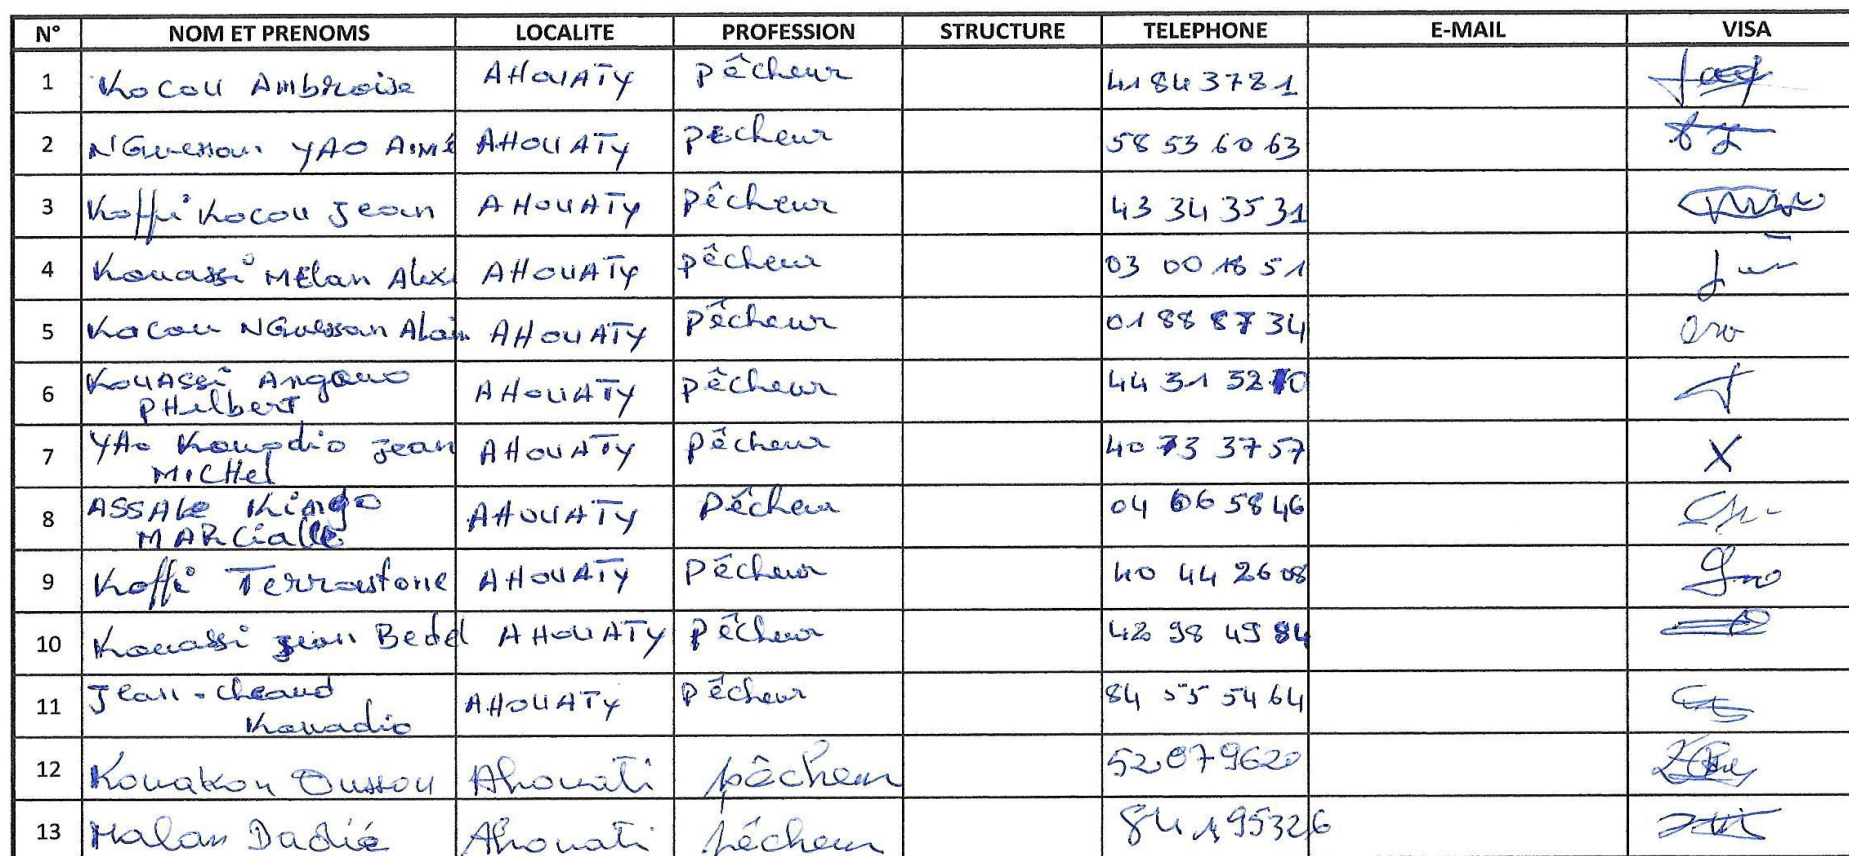 N° NOM ET PRENOMS LOCALITE PROFESSION STRUCTURE TELEPHONE E-MAIL VISA
1 Kocou Ambroise AHOUATY pêcheur 41 84 37 81
2 NGuessan YAO AIMé AHOUATY pêcheur 58 53 60 63
3 Koffi Kocou Jean AHOUATY pêcheur 43 34 35 31
4 Kouassi MElan Alexi AHOUATY pêcheur 03 00 18 51
5 Kacou NGuessan Alain AHOUATY pêcheur 01 88 87 34
6 KouAssi Angouo AHOUATY pêcheur 44 31 32
PHilbert
7 YAo Kouadio Jean AHOUATY pêcheur 40 73 37 57
MICHel
8 ASSAKe Kingo AHOUATY Pêcheur 04 06 58 46
MARCialle
9 Koffi Terrastone AHOUATY pêcheur 40 44 26 08
10 Kouassi Jean Bedel AHOUATY pêcheur 42 98 49 84
11 Jean-cleaud AHOUATY pêcheur 84 55 54 64
Kouadio
12 Kouakou Oussou Ahouati pêcheur 52079620
13 Malan Dadié Ahouati pêcheur 84195326